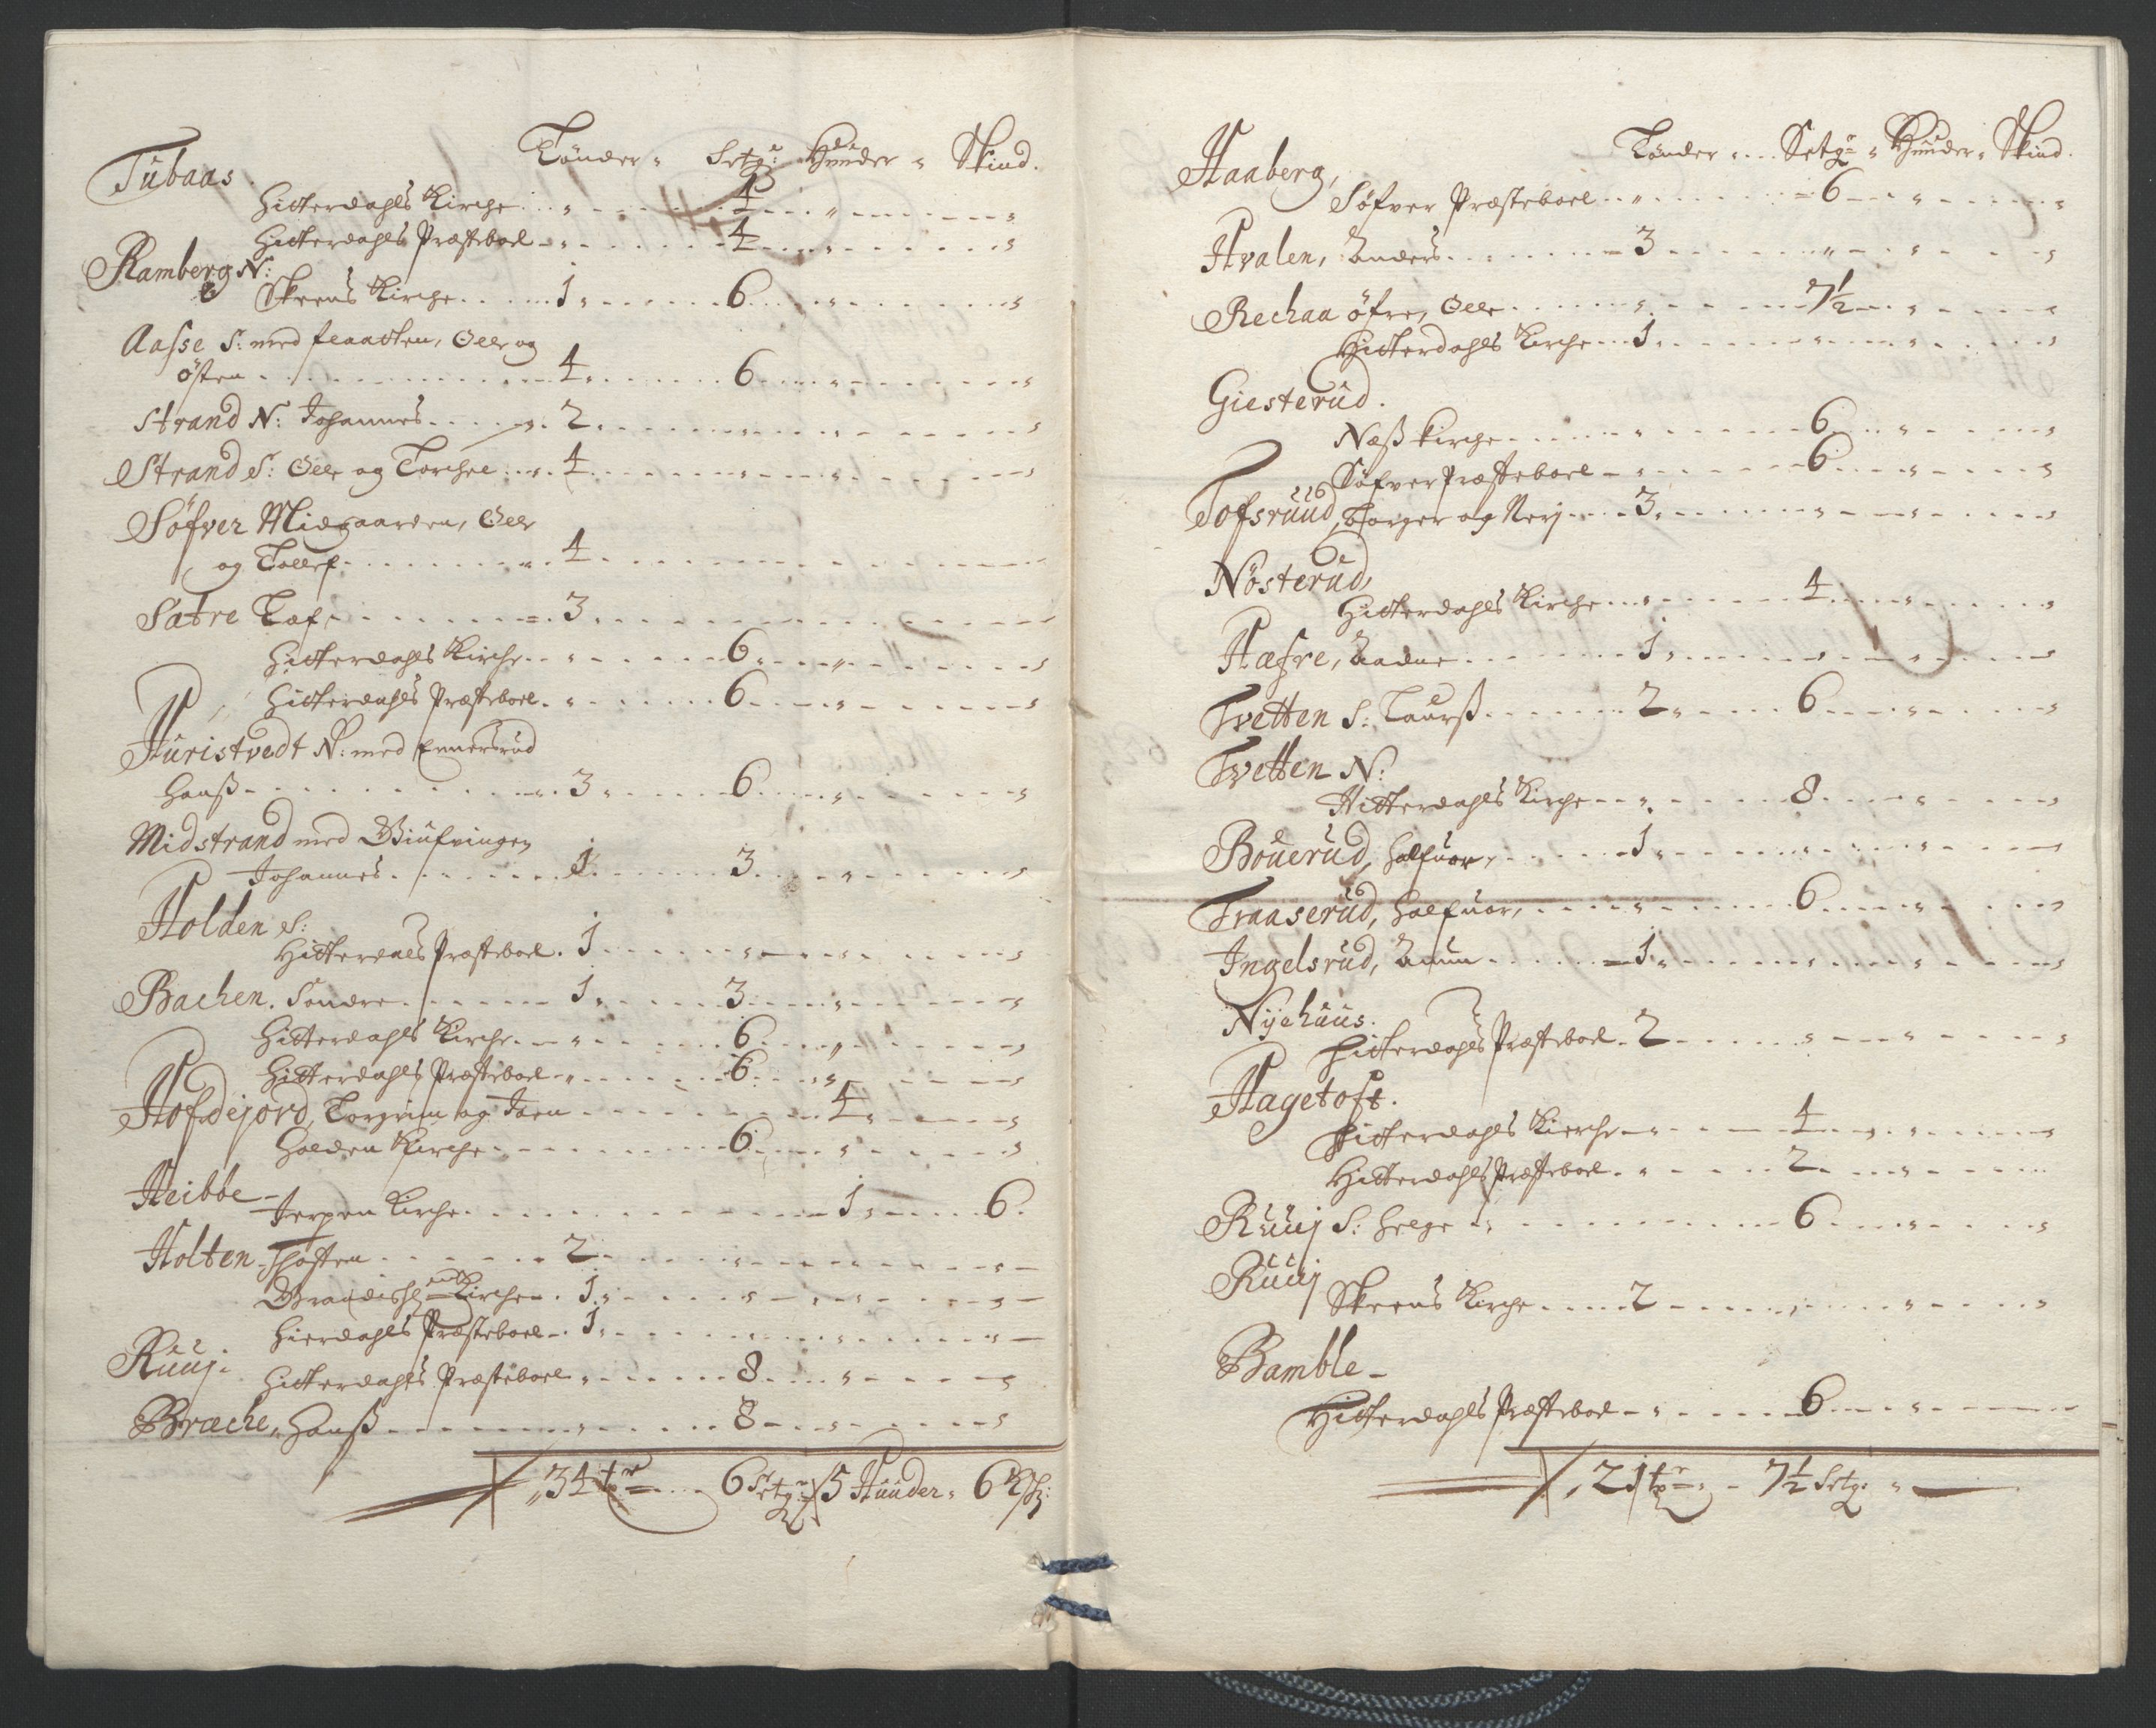 Tønder " Setg: Huuder " Skind.
Tubaas.
Hitterdahls Kirche . . . " - - - 4 - - - " - - - "
Hitterdahls Præsteboel - " - - - 4 - - - " - - - "
Ramberg N:
Skeens Kirche . . . 1 " - - - 6 - - - " - - - "
Aasse S: med Olle og
østen - - - 4 " - - - 6 - - - " - - - "
Strand N: Johannes - - - 2 " - - - " - - - " - - - "
Strand S: Olle og Torchel - - - 4 - - - " - - - " - - - "
Søfver Midgaarden, Olle
og Tollef - - - 4 - - -
Satre Tæf - - - 3 " - - -
Hitterdahls Kirche - - " - - - 6 " - - - " - - - "
Hitterdahls Præsteboel - " - - - 6 - - - " - - - "
Huristvedt N: med Ennersrud
Hanß - - - 3 " - - - 6 - - - " - - - "
Midstrand med
Johannes - - - 1 - - - 3 - - - " - - - "
Holden S:
Hitterdals Præsteboel . 1 - - - " - - - " - - - "
Bachen. Søndre - - - 1 " - - - 3 - - - " - - - "
Hitterdahls Kirche - - " - - - 6 - - - " - - - "
Hitterdahls Præsteboel - " - - - 6 - - - " - - - "
Hofdejord, Torgrim og Joen - - - 4 " - - - "
Holden Kirche - - - 6 - - - " - - - "
Heibøe -
Jerpen Kirche - - - 1 " - - - 6 .
Holten - Thosten - - - 2 - - - " - - - " - - - "
Kirche - . 1 " - - - " - - - " - - - "
Hierdahls Præsteboel - . 1 " - - - " - - - " - - - "
Ruuj.
Hitterdahls Præsteboel " - - - 8 - - - " - - - "
Bræche, Hanß - - - " - - - 8 - - - " - - - "
" 34 tr - - - 6 Setgr 5 Huuder " 6 Ksk:
Tønder " . . . Setgr " Huuder " Skind.
Haaberg,
Søfver Præsteboel . . " - - - 6 - - - " - - - "
Hvalen, Anders - - - 3 - - - " - - - " - - - "
Rechaa øfre, Olle - - - " - - - 7½ - - - " - - - "
Hitterdahls Kirche - - 1 " - - - " - - - " - - - "
Giesterud.
Næß Kirche - - - " - - - 6 - - - " - - - "
Søfver Præsteboel - " - - - 6 - - - " - - - "
Tofsruud, Torger og Nerj - - - 3 " - - - " - - - " - - - "
Nøsterud,
Hitterdahls Kirche - - " - - - 4 - - - " - - - "
Hæfre, Aadne - - - 1 " - - - " - - - " - - - "
Tvetten S: Laurß - - - 2 " - - - 6 - - - " - - - "
Tvetten N:
Hitterdahls Kirche - - " - - - 8 - - - " - - - "
Bouerud, Halfuor, - - - 1 " - - - " - - - " - - - "
Traaserud, Halfuor, - - - " - - - 6 - - - " - - - "
Ingelsrud, Amun - - - 1 " - - - " - - - " - - - "
Nyehuus.
Hitterdahls Præsteboel - 2 - - - " - - - " - - - "
Hagetoft.
Hitterdahls Kierche - " - - - 4 - - - " - - - "
Hitterdahls Præsteboel . " - - - 2 - - - " - - -
Ruuj S: Helge - " - - - 6 - - - " - - - "
Ruuj
Skeens Kirche - - - 2 - - - " - - - " - - - "
Bamble -
Hitterdahls Præsteboel - " - - - 6 - - - " - - -
" 21 tr " - 7½ Setg: "